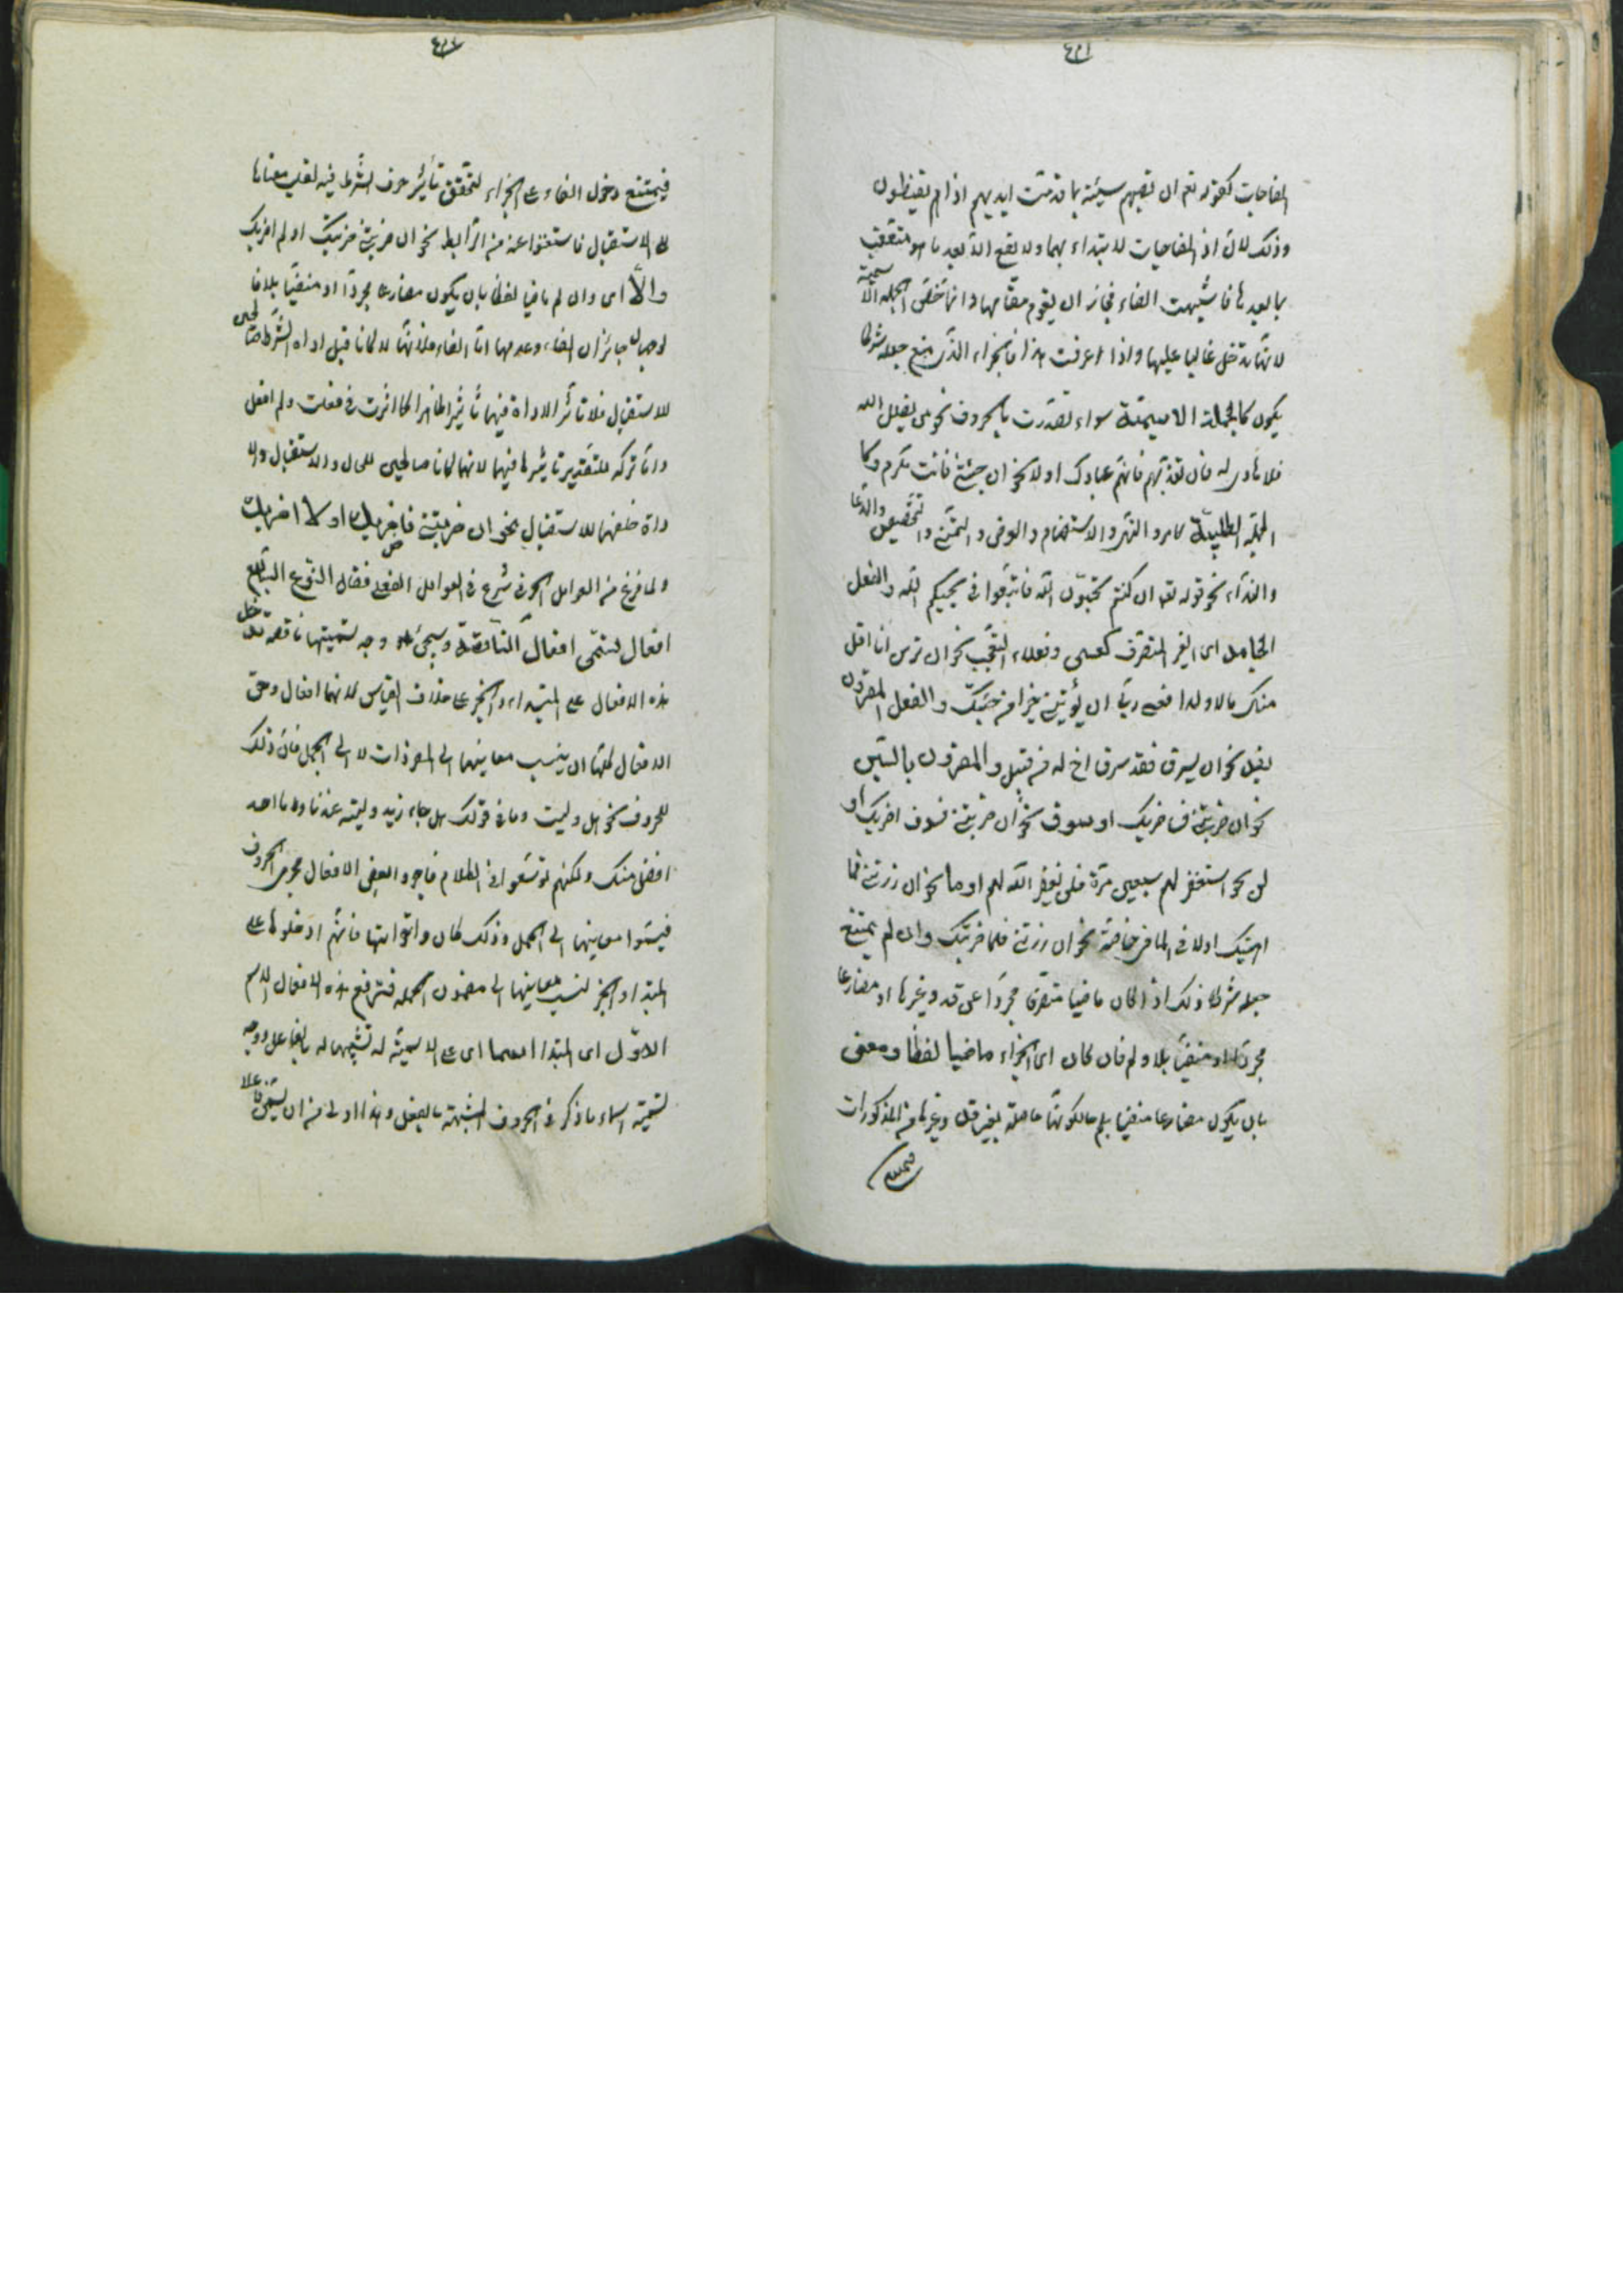 ٤٣١
المفاجات كقوله تعم ان تصبهم سيئة بما قدمت ايديهم اذا هم يقنطون
وذلك لان اذ المفاجيات لا يبتداء بهما ولا يقع الا بعد ما هو متعقب
بما بعدها فاشبهت الفاء فجاز ان يقوم مقامها وانما تختص الجملة الاسمية
لانها تدخل غالبا عليها واذا عرفت هذا فالجزاء الذى منع جعله شرطا
يكون كالجملة الاسمية سواء تصدرت بالحروف نحو من يضلل الله
فلا هادى له فان تعذبهم فانهم عبادك اولا نحو ان جئتنى فانت مكرم وكا
الجملة الطلبية كامر والنهى والاستفهام والعرض والتمنى والتحضيض والدعا
والنداء نحو قوله تعم ان كنتم تحبون الله فاتبعونى يحببكم الله والفعل
الجامد اى الغير المتصرف كعسى وفعلاء التعجب نحو ان ترن انا اقل
منك مالا ولدا فعسى ربى ان يؤتين خيرا من جنتك والفعل المقرون
بقد نحو ان يسرق فقد سرق اخ له من قبل والمقرون بالسين
نحو ان ضربتنى فساضربك او سوف نحو ان ضربتنى فسوف اضربك او
لن نحو استغفر لهم سبعين مرة فلن يغفر الله لهم او ما نحو ان زرتنى فما
اهنتك اولا فى الماضى خاصة نحو ان زرتنى فلا ضربتك وان لم يمتنع
جعله شرطا وذلك اذا كان ماضيا متصرفا مجردا عن قد وغيرها او مضارعا
مجردا او منفيا بلا ولم فان كان اى الجزاء ماضيا لفظا ومعنى
بان يكون مضارعا منفيا بلم حالكونها حاصلة بغير قد وغيرها من المذكورات
فيمتنع
٤٣٢
فيمتنع دخول الفاء على الجزاء لتحقق تأثير حرف الشرط فيه لقلب معناها
الى الاستقبال فاستغنوا عنه من الرابط نحو ان ضربتنى ضربتك او لم اضربك
والا اى وان لم ماضيا لفظا بان يكون مضارعا مجردا او منفيا بلا فا
لوجهان جائزان الفاء وعدمها اما الفاء فلانها لا كانا قبل اداة الشرط صالحين
للاستقبال فلا تأثر الاداة فيهما تأثيرا ظاهرا كما اثرت فى فعلت ولم افعل
واما تركه فلتقدير تأثيرها فيهما لانهما كانا صالحين للحال والاستقبال والا
داة خلصهما للاستقبال نحو ان ضربتنى فاضربك او لا اضربك
ولما فرغ من العوامل الحرفى شرع فى العوامل الفعلى فقال النوع السابع
افعال تسمى افعال الناقصة وسيجئ وجه تسميتها ناقصة تدخل
هذه الافعال على المبتداء والخبر على خلاف القياس لانهما افعال وحق
الافعال كلها ان ينسب معانيها الى المفردات لا الى الجمل فان ذلك
للحروف نحو هل وليت وما فى قولك هل جاء زيد وليته عندنا وما احد
افضل منك ولكنهم توسعوا فى الكلام فاجروا بعض الافعال مجرى الحروف
فنسبوا معانيها الى الجمل وذلك كان واخواتها فانهم ادخلوها على
المبتدا والخبر لنسب معانيها الى مضمون الجملة فترفع هذه الافعال الاسم
الاول اى المبتدا اسما اى على الاسمية له تشبيها له بالفاعل ووجه
تسمية اسماء ما ذكر فى الحروف المشبهة بالفعل وهذا اولى من ان يسمى فاعلا